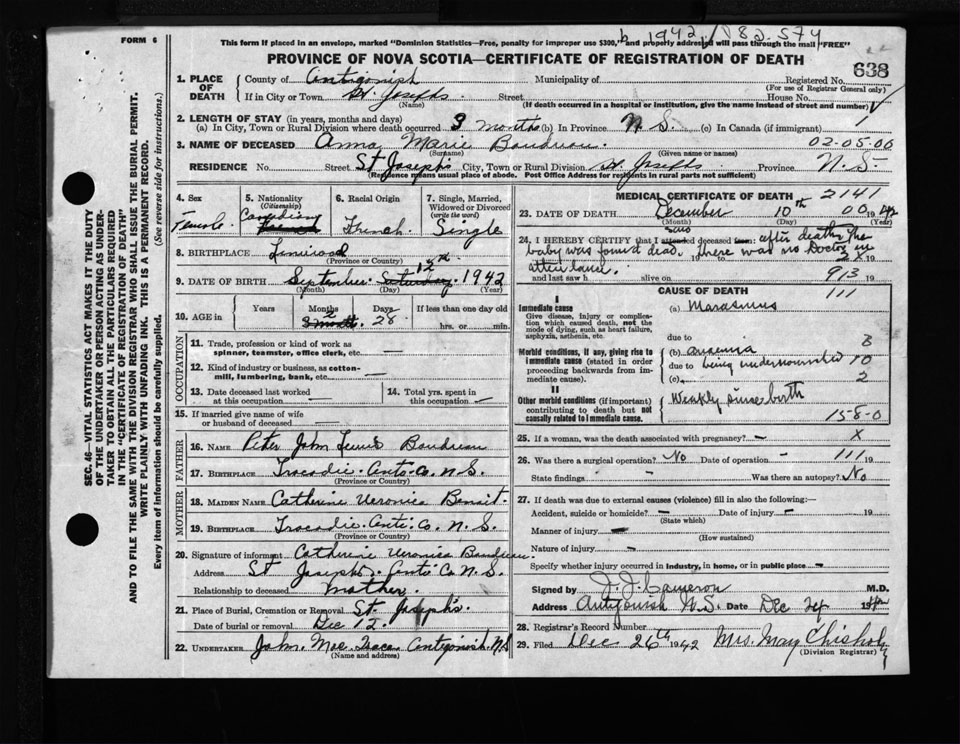 b 1942 / 82-574
FORM 6
This form if placed in an envelope, marked "Dominion Statistics—Free, penalty for improper use $300," and properly addressed will pass through the mail "FREE"
PROVINCE OF NOVA SCOTIA—CERTIFICATE OF REGISTRATION OF DEATH
638
1. PLACE OF DEATH County of Antigonish Municipality of Registered No.
(For use of Registrar General only)
If in City or Town St. Josephs Street House No.
(Name) (If death occurred in a hospital or institution, give the name instead of street and number)
2. LENGTH OF STAY (in years, months and days)
(a) In City, Town or Rural Division where death occurred 3 months (b) In Province N.S. (c) In Canada (if immigrant) 1
3. NAME OF DECEASED Anna Marie Boudreau. 02-05-00
(Surname) (Given name or names)
RESIDENCE No. Street St Joseph's City, Town or Rural Division St. Josephs Province N.S.
(Residence means usual place of abode. Post Office Address for residents in rural parts not sufficient)
SEC. 46—VITAL STATISTICS ACT, MAKES IT THE DUTY
OF THE UNDERTAKER OR PERSON ACTING AS UNDER-
TAKER TO OBTAIN ALL THE PARTICULARS REQUIRED
IN THE "CERTIFICATE OF REGISTRATION OF DEATH"
AND TO FILE THE SAME WITH THE DIVISION REGISTRAR WHO SHALL ISSUE THE BURIAL PERMIT.
WRITE PLAINLY WITH UNFADING INK. THIS IS A PERMANENT RECORD.
Every item of information should be carefully supplied. (See reverse side for instructions.)
4. Sex Female
5. Nationality (Citizenship) Canadian French
6. Racial Origin French
7. Single, Married, Widowed or Divorced (write the word) Single
8. BIRTHPLACE
(Province or Country)
9. DATE OF BIRTH September Saturday 12th 1942
(Month) (Day) (Year)
10. AGE in Years Months 2 Days 28 If less than one day old
hrs. or min.
OCCUPATION
11. Trade, profession or kind of work as spinner, teamster, office clerk, etc. —
12. Kind of industry or business, as cotton-mill, lumbering, bank, etc. —
13. Date deceased last worked at this occupation — 14. Total yrs. spent in this occupation —
15. If married give name of wife or husband of deceased —
FATHER
16. NAME Peter John Boudreau
17. BIRTHPLACE Tracadie Anto. Co. N.S.
(Province or Country)
MOTHER
18. MAIDEN NAME Catherine Veronica Benoit
19. BIRTHPLACE Tracadie Anti. Co. N.S.
(Province or Country)
20. Signature of informant Catherine Veronica Boudreau.
Address St Joseph's Anto Co N.S.
Relationship to deceased Mother
21. Place of Burial, Cremation or Removal St. Joseph's
Date of burial or removal Dec 12.
22. UNDERTAKER John Mac Isaac Antigonish N.S
(Name and address)
MEDICAL CERTIFICATE OF DEATH 2141
23. DATE OF DEATH December 10th 00 1942
(Month) (Day) (Year)
24. I HEREBY CERTIFY that I attended deceased from: after death. The
baby was found dead. There was no Doctor in
attendance.
and last saw h alive on 913 19
CAUSE OF DEATH 111
I
Immediate cause
Give disease, injury or complication which caused death, not the mode of dying, such as heart failure, asphyxia, asthenia, etc.
(a) Marasmus
due to 3
Morbid conditions, if any, giving rise to immediate cause (stated in order proceeding backwards from immediate cause).
(b) anaemia
due to being undernourished 10
(c) 2
II
Other morbid conditions (if important) contributing to death but not causally related to immediate cause.
Weakly since birth
158-0
25. If a woman, was the death associated with pregnancy? — X
26. Was there a surgical operation? No Date of operation - 111 19
State findings - Was there an autopsy? No
27. If death was due to external causes (violence) fill in also the following:—
Accident, suicide or homicide? — Date of injury — 19
(State which)
Manner of injury —
(How sustained)
Nature of injury —
Specify whether injury occurred in industry, in home, or in public place —
Signed by J. J. Cameron M.D.
Address Antigonish N.S. Date Dec 24 1942
28. Registrar's Record Number
29. Filed Dec 26th 1942 Mrs. May Chisholm
(Division Registrar)